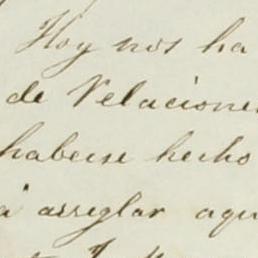 Hoy nos ha
de Relacione
haberse hecho
a arreglar aqu